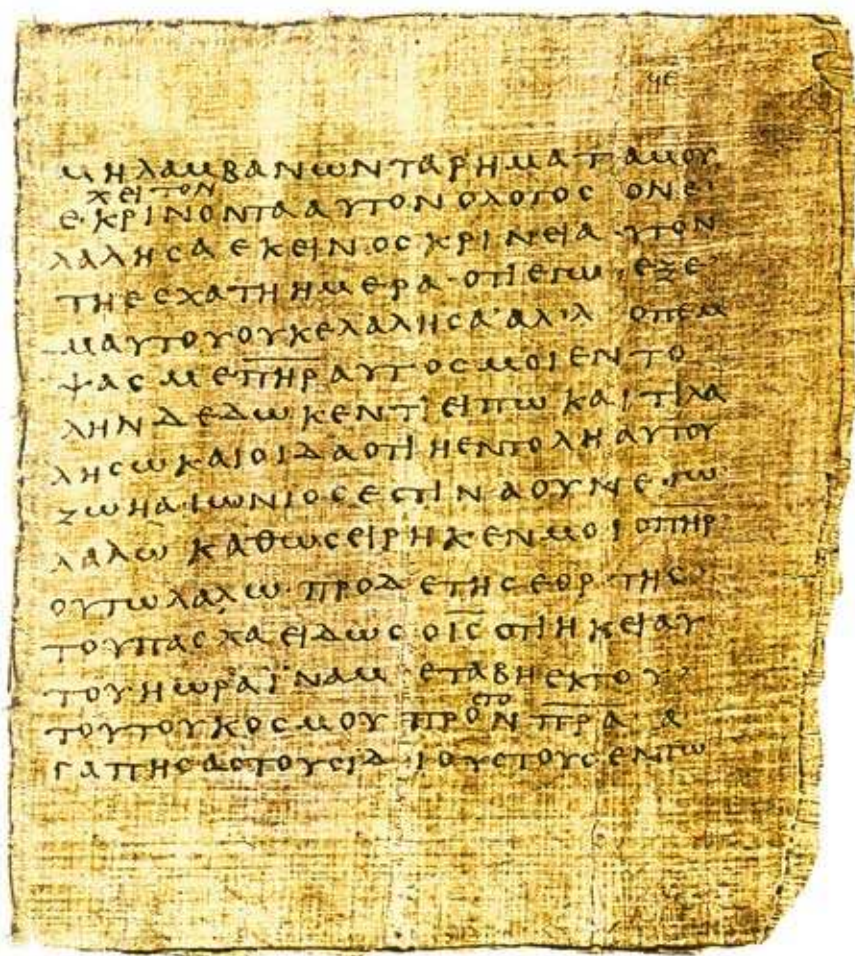 ϥε
μηλαμβανωνταρηματαμου
χειτον
ε·κρινοντααυτονολογος ονε·
λαλησαεκεινοςκρινεια·υτον
τηεσχατηημερα·οτιεγω·εξε
μαυτουουκελαλησα·αλ·λ οπεμ
ψαςμεπ̅η̅ρ̅αυτοςμοιεντο
ληνδεδωκεντιειπωκαιτιλα
λησωκαιοιδαοτιηεντοληαυτου
ζωηα·ιωνιοςεστιναουνε·γω
λαλω καθωςειρηκ·ενμοι οπηρ
ουτωλαλω·προδ·ετηςεορ·της
τουπασχαειδωςοι̅ς̅οτιηκειαυ
τουηωραϊναμ·εταβηεκτου
ετο
τουτουκοσμουπρονπ̅ρ̅α̅·α
γαπησαςτουςιδ·ιουςτουςεντω